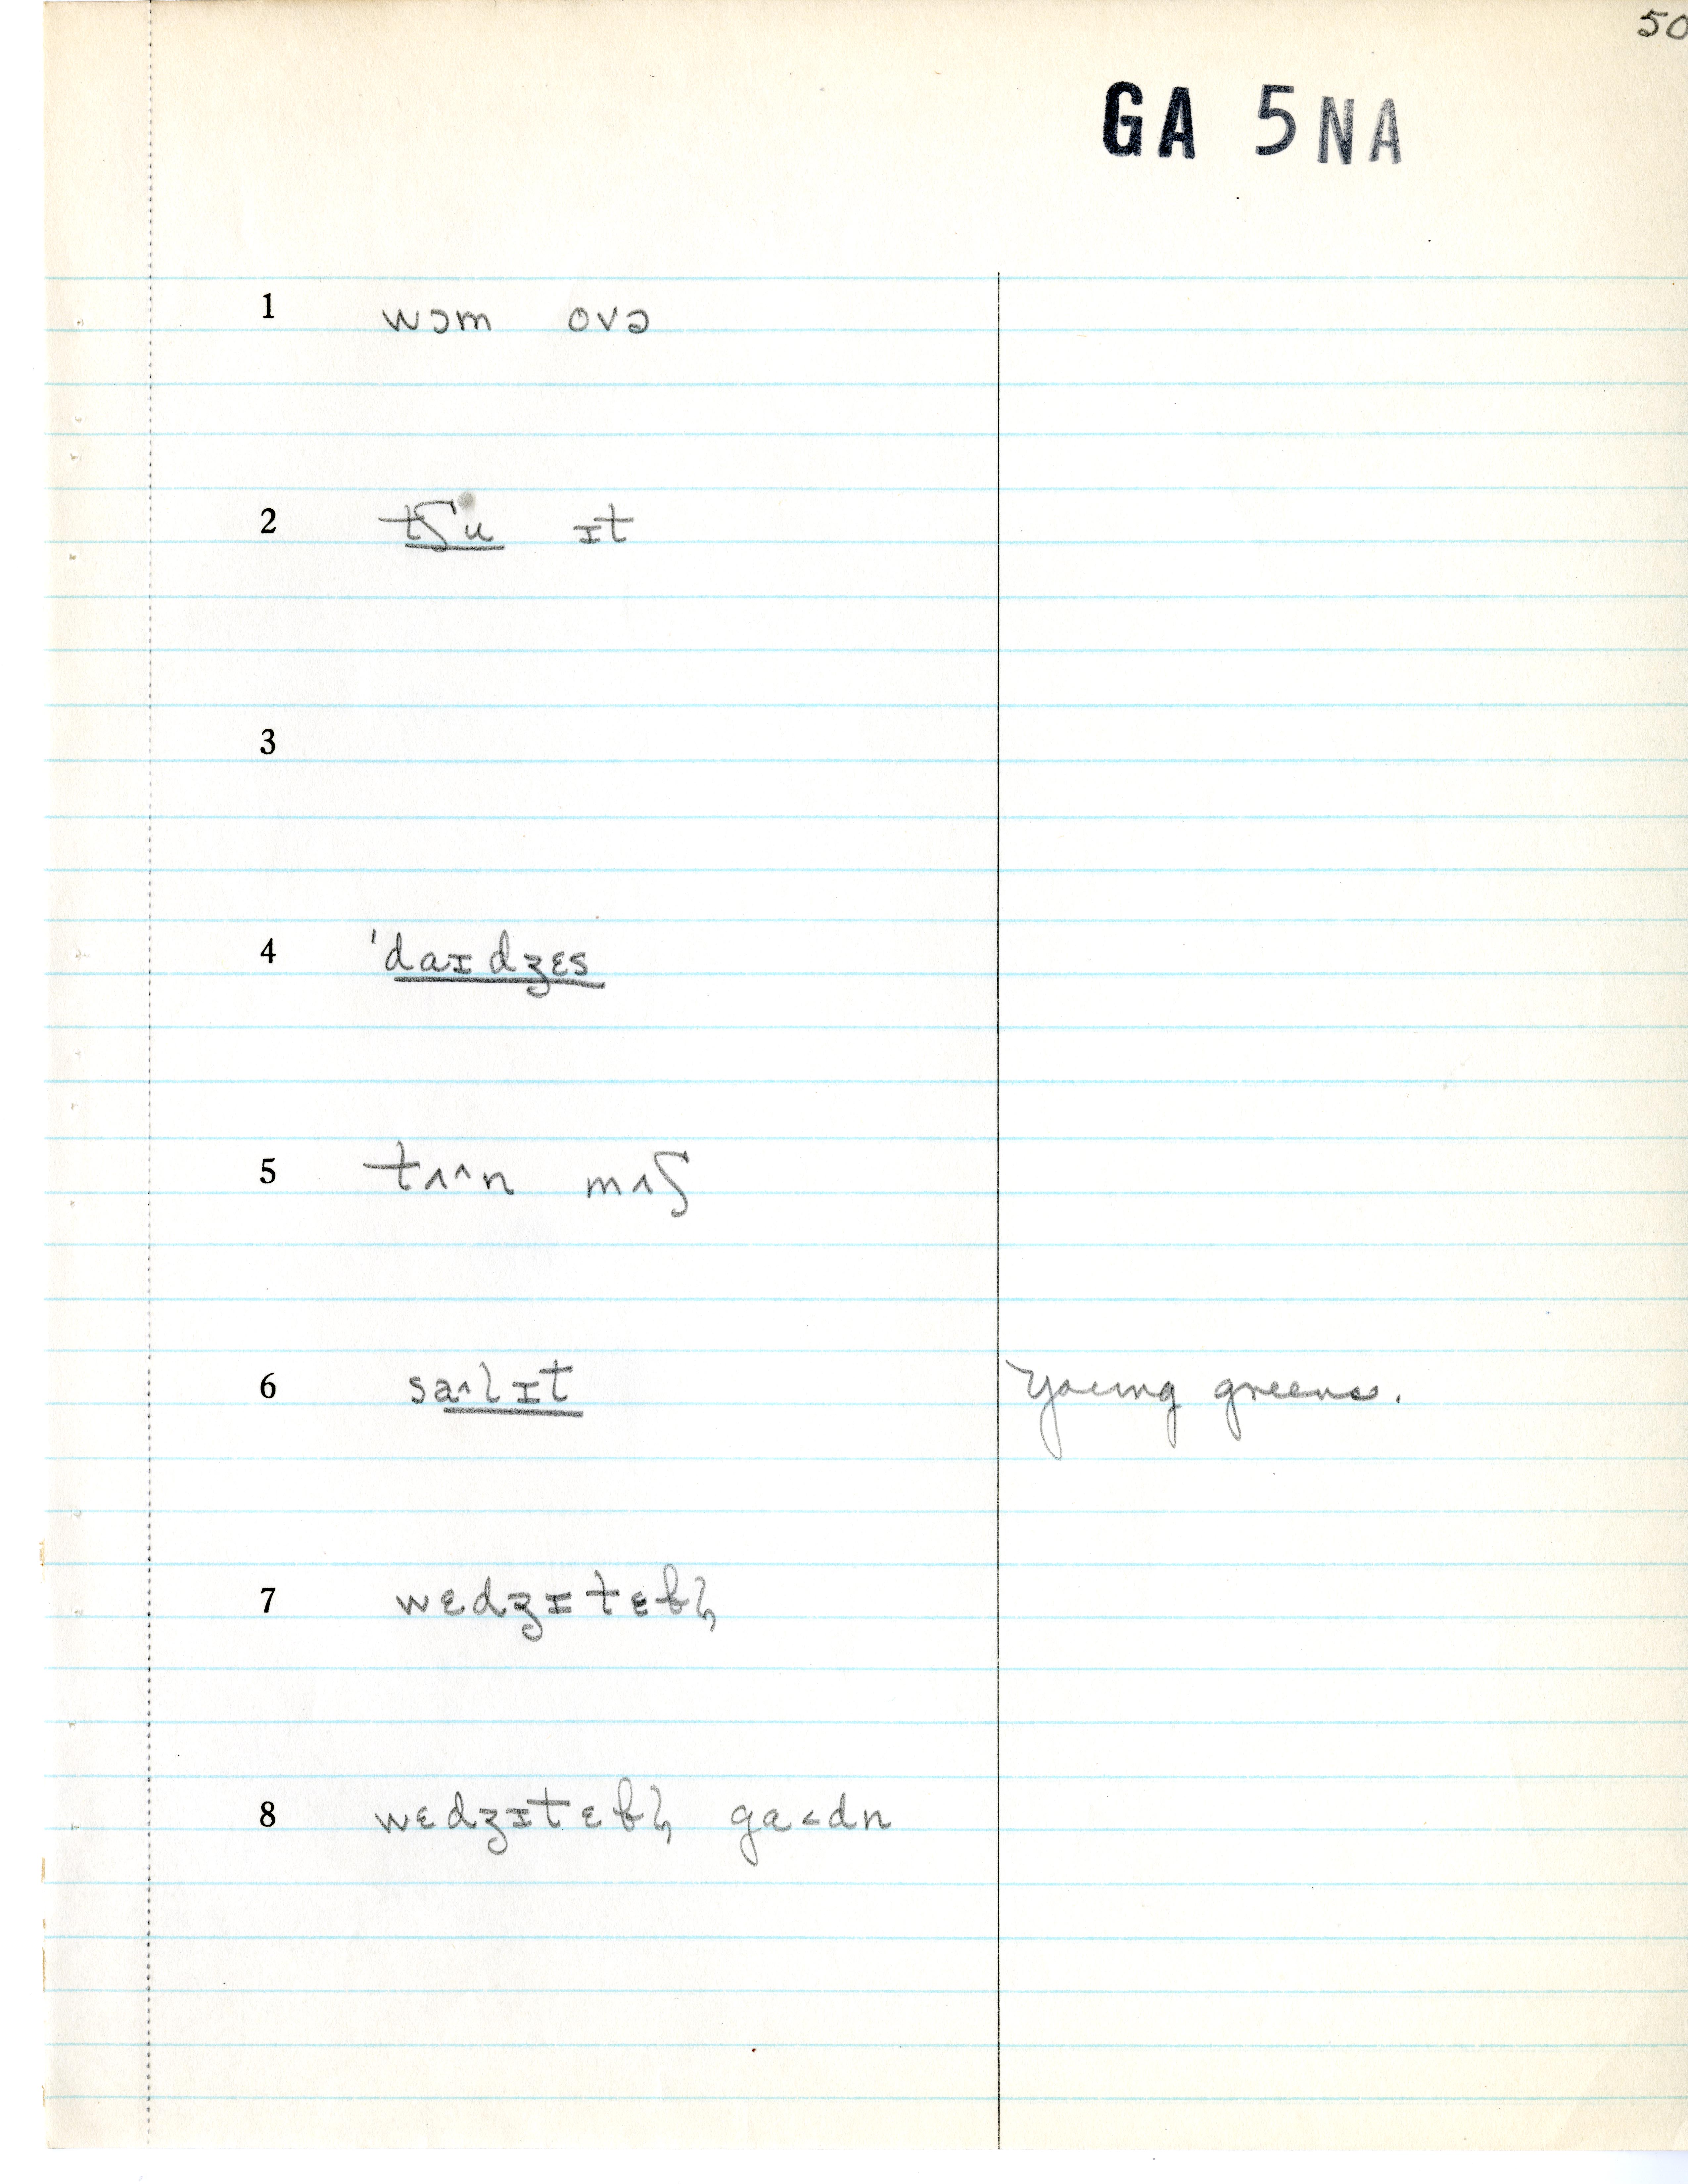 50
GA 5NA
1 wɔm ovə
2 tʃu ɪt
3
4 'daɪdʒɛs
5 tʌ^n mʌʃ
6 sa^lɪt young greens.
7 wɛdʒɪtɛbl̩
8 wɛdʒɪtɛbl̩ ga<dn